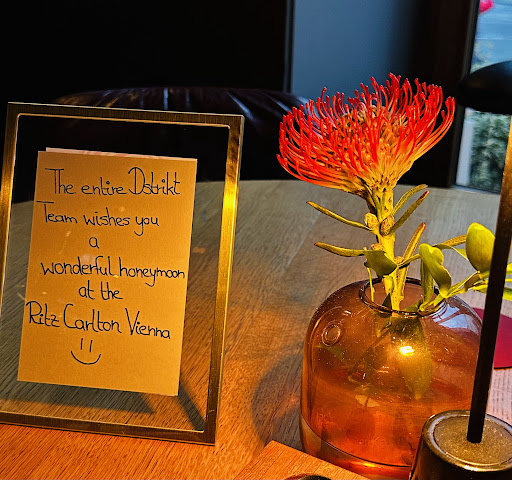 The entire Dstrikt
Team wishes you
a
wonderful honeymoon
at the
Ritz Carlton Vienna